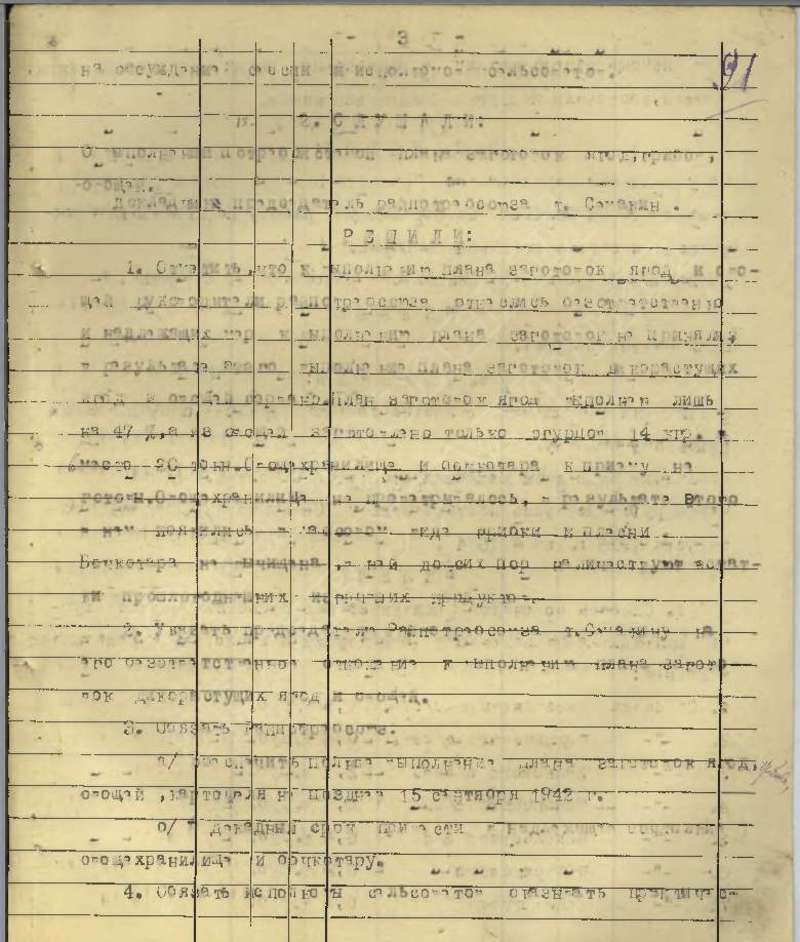 - 3 -
91
на обсуждение сессии и исполкомов сельсоветов.
3. СЛУШАЛИ:
О выполнении потребсоюзом плана заготовок ягод, грибов,
овощей.
Докладчик председатель райпотребсоюза т. Семакин .
РЕШИЛИ:
1. Отметить, что к выполнению плана заготовок ягод и ово-
щей руководители райпотребсоюза отнеслись безответственно
и надлежащих мер к выполнению плана заготовок не приняли,
в результате чего выполнение плана заготовок дикорастущих
ягод и овощей сорвано. План заготовок ягод выполнен лишь
на 47 %, а из овощей заготовлено только огурцов 14 клг. в
место 20 тонн. Овощехранилище и бочкотара к приему не
готовы. Овощехранилище не проветривалось, в результате этого
в нем появились в массовом виде грибки и плесни .
Бочкотара не очищена, в ней до сих пор наличествуют остат-
ки прошлогодних
2. Указать председателю Райпотребсоюза т. Семакину на
его безответственное отношение к выполнению плана загото-
вок дикорастущих ягод и овощей.
3. Обязать Райпотребсоюз.
а/ обеспечить полное выполнение плана заготовок ягод,
овощей, картофеля не позднее 15 сентября 1942 г.
б/ В декадный срок привести в надлежащее состояние
овощехранилище и бочкотару.
4. Обязать исполкомы сельсоветов оказывать практичес-